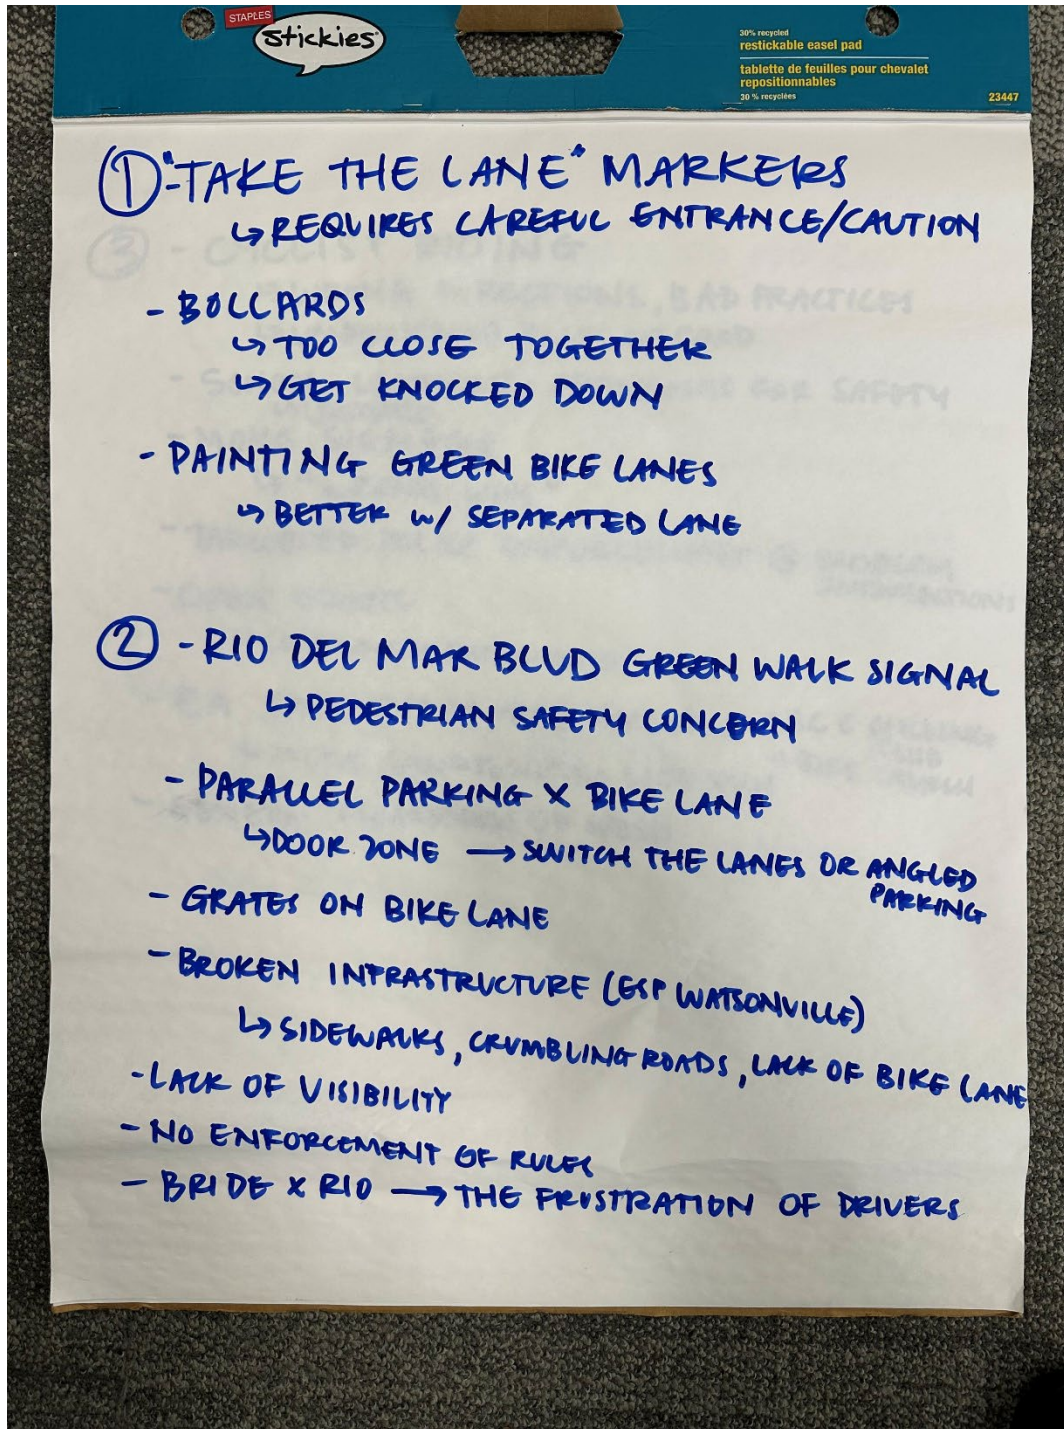 STAPLES
stickies
30% recycled
restickable easel pad
tablette de feuilles pour chevalet
repositionnables
30 % recyclées
23447
① - "TAKE THE LANE" MARKERS
↳ REQUIRES CAREFUL ENTRANCE/CAUTION
- BOLLARDS
↳ TOO CLOSE TOGETHER
↳ GET KNOCKED DOWN
- PAINTING GREEN BIKE LANES
↳ BETTER w/ SEPARATED LANE
② - RIO DEL MAR BLVD GREEN WALK SIGNAL
↳ PEDESTRIAN SAFETY CONCERN
- PARALLEL PARKING X BIKE LANE
↳ DOOR ZONE → SWITCH THE LANES OR ANGLED
PARKING
- GRATES ON BIKE LANE
- BROKEN INFRASTRUCTURE (ESP WATSONVILLE)
↳ SIDEWALKS, CRUMBLING ROADS, LACK OF BIKE LANE
- LACK OF VISIBILITY
- NO ENFORCEMENT OF RULES
- BRIDE X RIO → THE FRUSTRATION OF DRIVERS
③ - CYCLIST RIDING
DIRECTIONS, BAD PRACTICES
FOR SAFETY